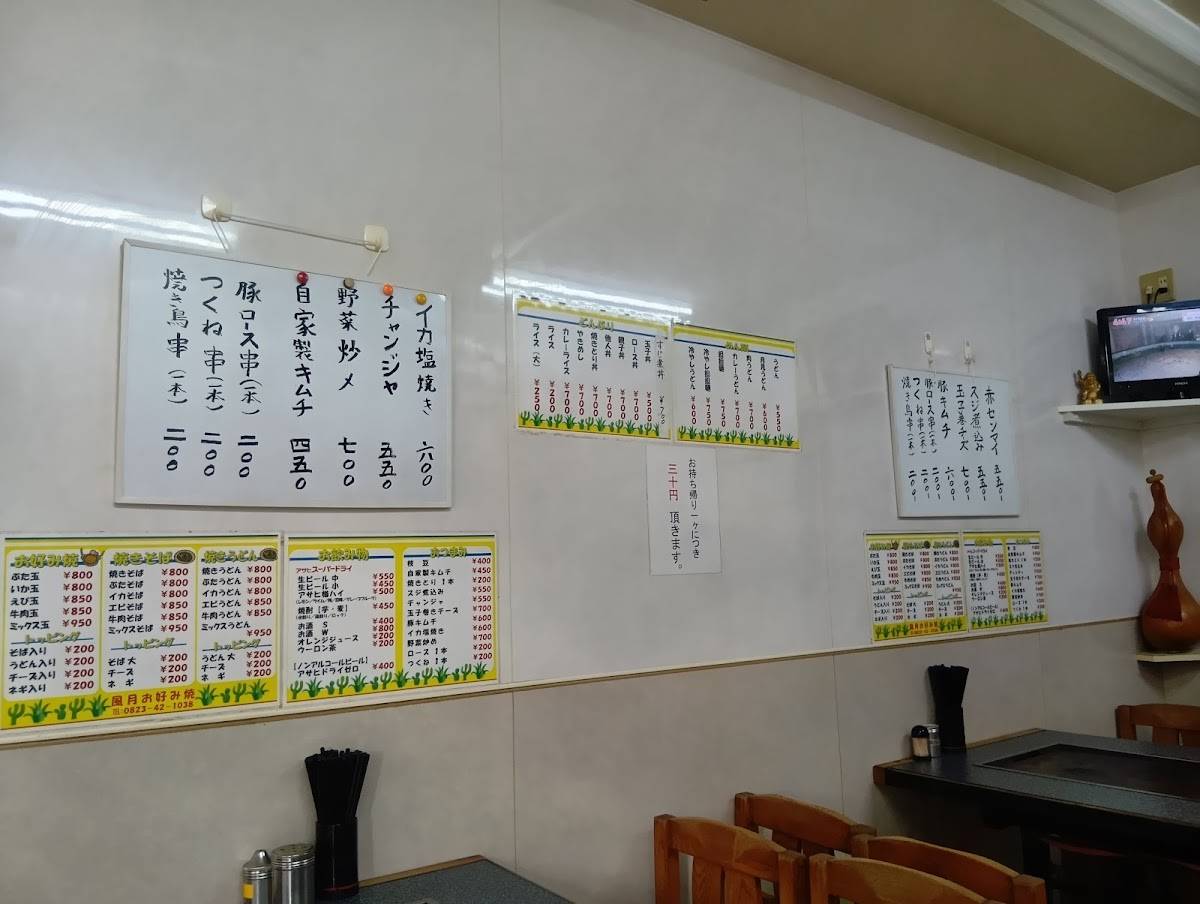 イカ塩焼き 六〇〇
チャンジャ 五五〇
野菜炒メ 七〇〇
自家製キムチ 四五〇
豚ロース串(一本) 二〇〇
つくね串(一本) 二〇〇
焼き鳥串(一本) 二〇〇
お好み焼
ぶた玉 ¥800
いか玉 ¥800
えび玉 ¥800
牛肉玉 ¥850
ミックス玉 ¥950
トッピング
そば入り ¥200
うどん入り ¥200
チーズ入り ¥200
ネギ入り ¥200
焼きそば
焼きそば ¥800
ぶたそば ¥800
イカそば ¥800
エビそば ¥800
牛肉そば ¥850
ミックスそば ¥950
トッピング
そば大 ¥200
チーズ ¥200
ネギ ¥200
焼きうどん
焼きうどん ¥800
ぶたうどん ¥800
イカうどん ¥800
エビうどん ¥800
牛肉うどん ¥850
ミックスうどん
¥950
トッピング
うどん大 ¥200
チーズ ¥200
ネギ ¥200
風月お好み焼
TEL:0823-42-1038
お飲み物
アサヒスーパードライ
生ビール 中 ¥550
生ビール 小 ¥450
アサヒ樽ハイ ¥500
焼酎【芋・麦】 ¥450
お酒 S ¥400
お酒 W ¥800
オレンジジュース ¥200
ウーロン茶 ¥200
【ノンアルコールビール】
アサヒドライゼロ ¥400
おつまみ
枝豆 ¥400
自家製キムチ ¥450
焼きとり 1本 ¥200
スジ煮込み ¥550
チャンジャ ¥550
玉子巻きチーズ ¥700
豚キムチ ¥600
イカ塩焼き ¥600
野菜炒め ¥700
ロース 1本 ¥200
つくね 1本 ¥200
どんぶり
すじ煮丼 ¥750
玉子丼 ¥500
ロース丼 ¥700
親子丼 ¥700
他人丼 ¥700
焼きとり丼 ¥700
やきめし ¥700
カレーライス ¥700
ライス ¥200
ライス(大) ¥250
うどん ¥550
月見うどん ¥600
肉うどん ¥700
カレーうどん ¥700
冷やしうどん ¥600
お持ち帰り一ヶにつき
三十円 頂きます。
赤センマイ 五五〇
スジ煮込み 五五〇
玉子巻チーズ 七〇〇
豚キムチ 六〇〇
豚ロース串(一本) 二〇〇
つくね串(一本) 二〇〇
焼き鳥串(一本) 二〇〇